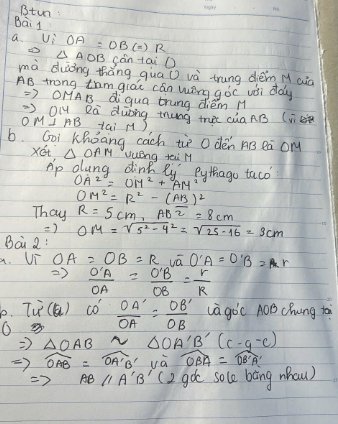 Btvn
Bài 1
a. Vì OA = OB (=) R
=> △ AOB cân tại O
mà đường thẳng qua O và trung điểm M của
AB trong tam giác cân vuông góc với đáy
=> OMAB đi qua trung điểm M
=> OM là đường trung trực của AB (vì
OM ⊥ AB tại M)
b. Gọi khoảng cách từ O đến AB là OM
Xét △ OAM vuông tại M
Áp dụng định lý Pythagu ta có:
OA² = OM² + AM²
OM² = R² - (AB)²
Thay R = 5cm, AB = 8cm
=) OM = √5² - 4² = √25 - 16 = 3cm
Bài 2:
a. Vì OA = OB = R và O'A = O'B = r
=> O'A/OA = O'B/OB = r/R
b. Từ (a) có OA'/OA = OB'/OB và góc AOB chung tại
O
=> △OAB ~ △OA'B' (c-g-c)
=> OAB = OA'B' và OBA = OB'A'
=> AB // A'B' (2 góc sole bằng nhau)